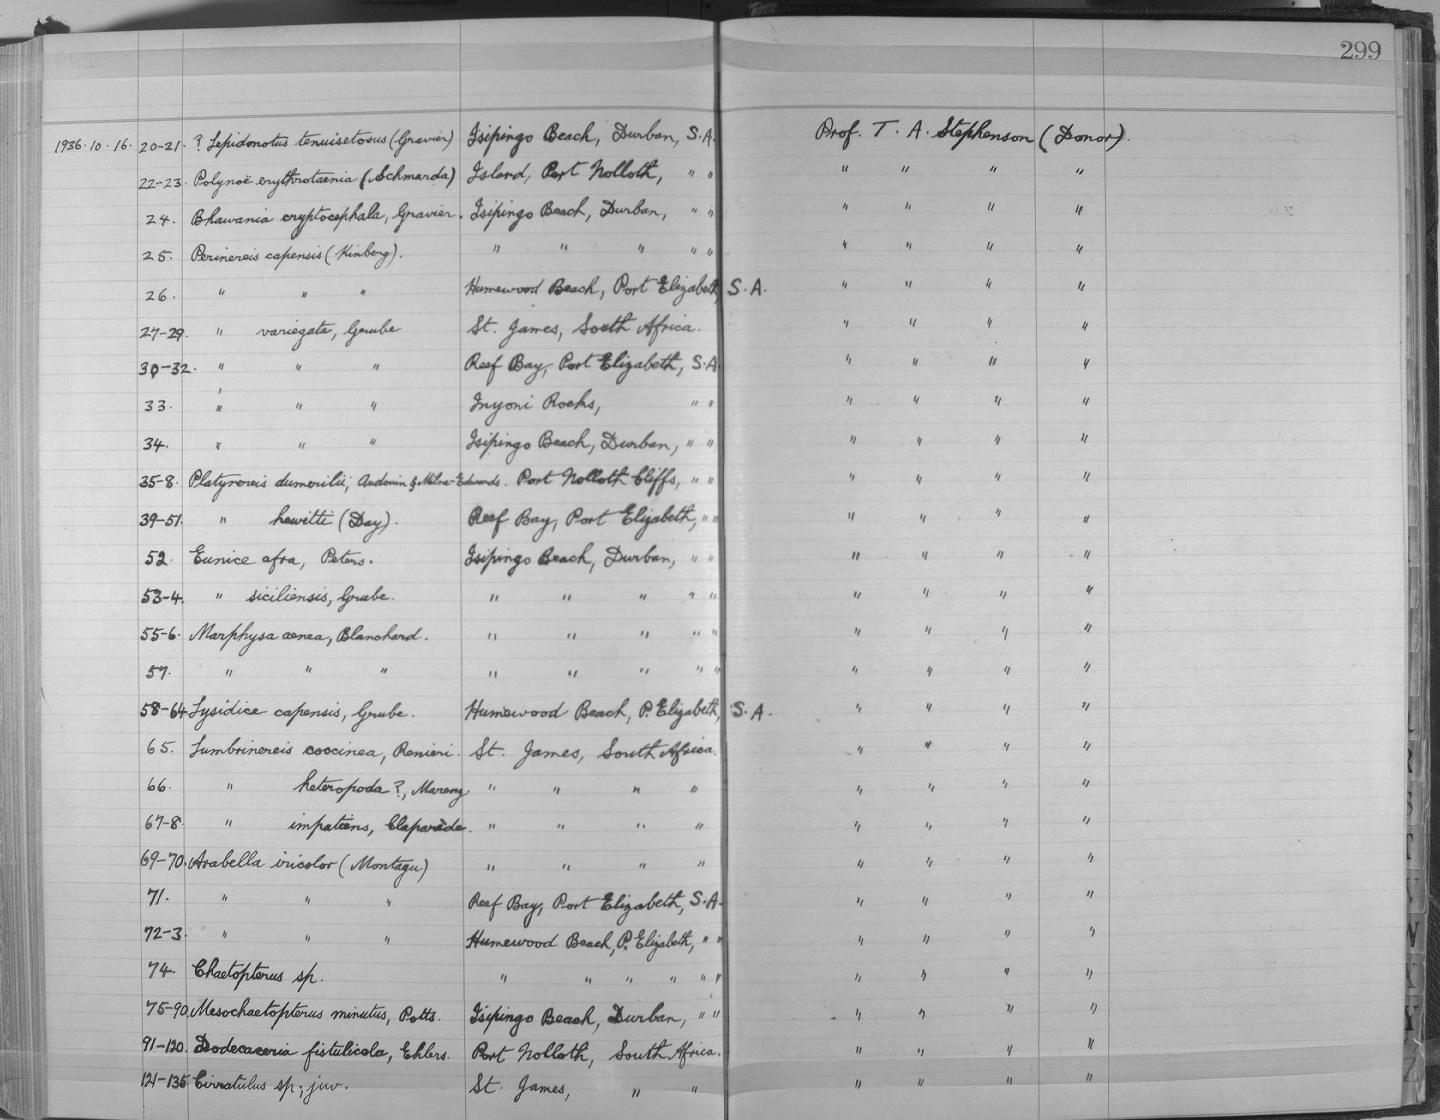 299
1936.10.16. 20-21. ? Lepidonotus tenuisetosus (Gravier) Isipingo Beach, Durban, S.A. Prof. T. A. Stephenson (Donor).
22-23. Polynoë erythrotaenia (Schmarda) Island, Port Nolloth, " " " " " "
24. Bhawania cryptocephala, Gravier. Isipingo Beach, Durban, " " " " " "
25. Perinereis capensis (Kinberg). " " " " " " " " "
26. " " " Humewood Beach, Port Elizabeth, S.A. " " " "
27-29. " variegata, Grube St. James, South Africa. " " " "
30-32. " " " Reef Bay, Port Elizabeth, S.A. " " " "
33. " " " Inyoni Rocks, " " " " " "
34. " " " Isipingo Beach, Durban, " " " " " "
35-8. Platynereis dumerilii, Audouin & Milne-Edwards. Port Nolloth Cliffs, " " " " " "
39-51. " hewitti (Day). Reef Bay, Port Elizabeth, " " " " " "
52. Eunice afra, Peters. Isipingo Beach, Durban, " " " " " "
53-4. " siciliensis, Grube. " " " " " " " " "
55-6. Marphysa aenea, Blanchard. " " " " " " " " "
57. " " " " " " " " " " " "
58-64 Lysidice capensis, Grube. Humewood Beach, P. Elizabeth, S.A. " " " "
65. Lumbrinereis coccinea, Renieri. St. James, South Africa. " " " "
66. " heteropoda ?, Marenz " " " " " " " "
67-8. " impatiens, Claparède. " " " " " " " "
69-70. Arabella iricolor (Montagu) " " " " " " " "
71. " " " Reef Bay, Port Elizabeth, S.A. " " " "
72-3. " " " Humewood Beach, P. Elizabeth, " " " " " "
74. Chaetopterus sp. " " " " " " " " " "
75-90. Mesochaetopterus minutus, Potts. Isipingo Beach, Durban, " " " " " "
91-120. Dodecaceria fistulicola, Ehlers. Port Nolloth, South Africa. " " " "
121-135 Cirratulus sp; juv. St. James, " " " " " "